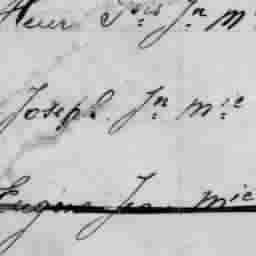 Henri Fois Jn M
Joseph. Jn Mie
Eugène Jn Mie